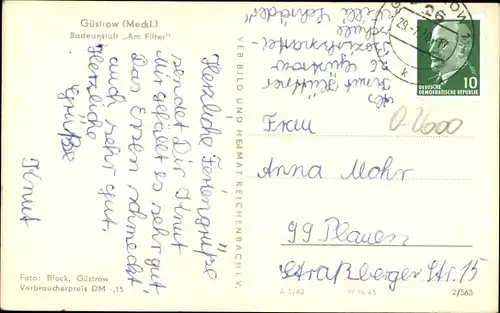 Güstrow (Meckl.)
Badeanstalt „Am Filter"
Herzliche Feriengrüße
sendet Dir Knut
Mir gefällt es sehr gut,
Das Essen schmeckt
auch sehr gut.
Herzliche
Grüße
Knut
Foto: Block, Güstrow
Verbraucherpreis DM -,15
VEB BILD UND HEIMAT REICHENBACH i. V.
A 2/63
2/563
Knut
26 Güstrow
Schule
10
DEUTSCHE
DEMOKRATISCHE REPUBLIK
02600
Frau
Anna Mohr
99 Plauen
Straßberger Str. 15